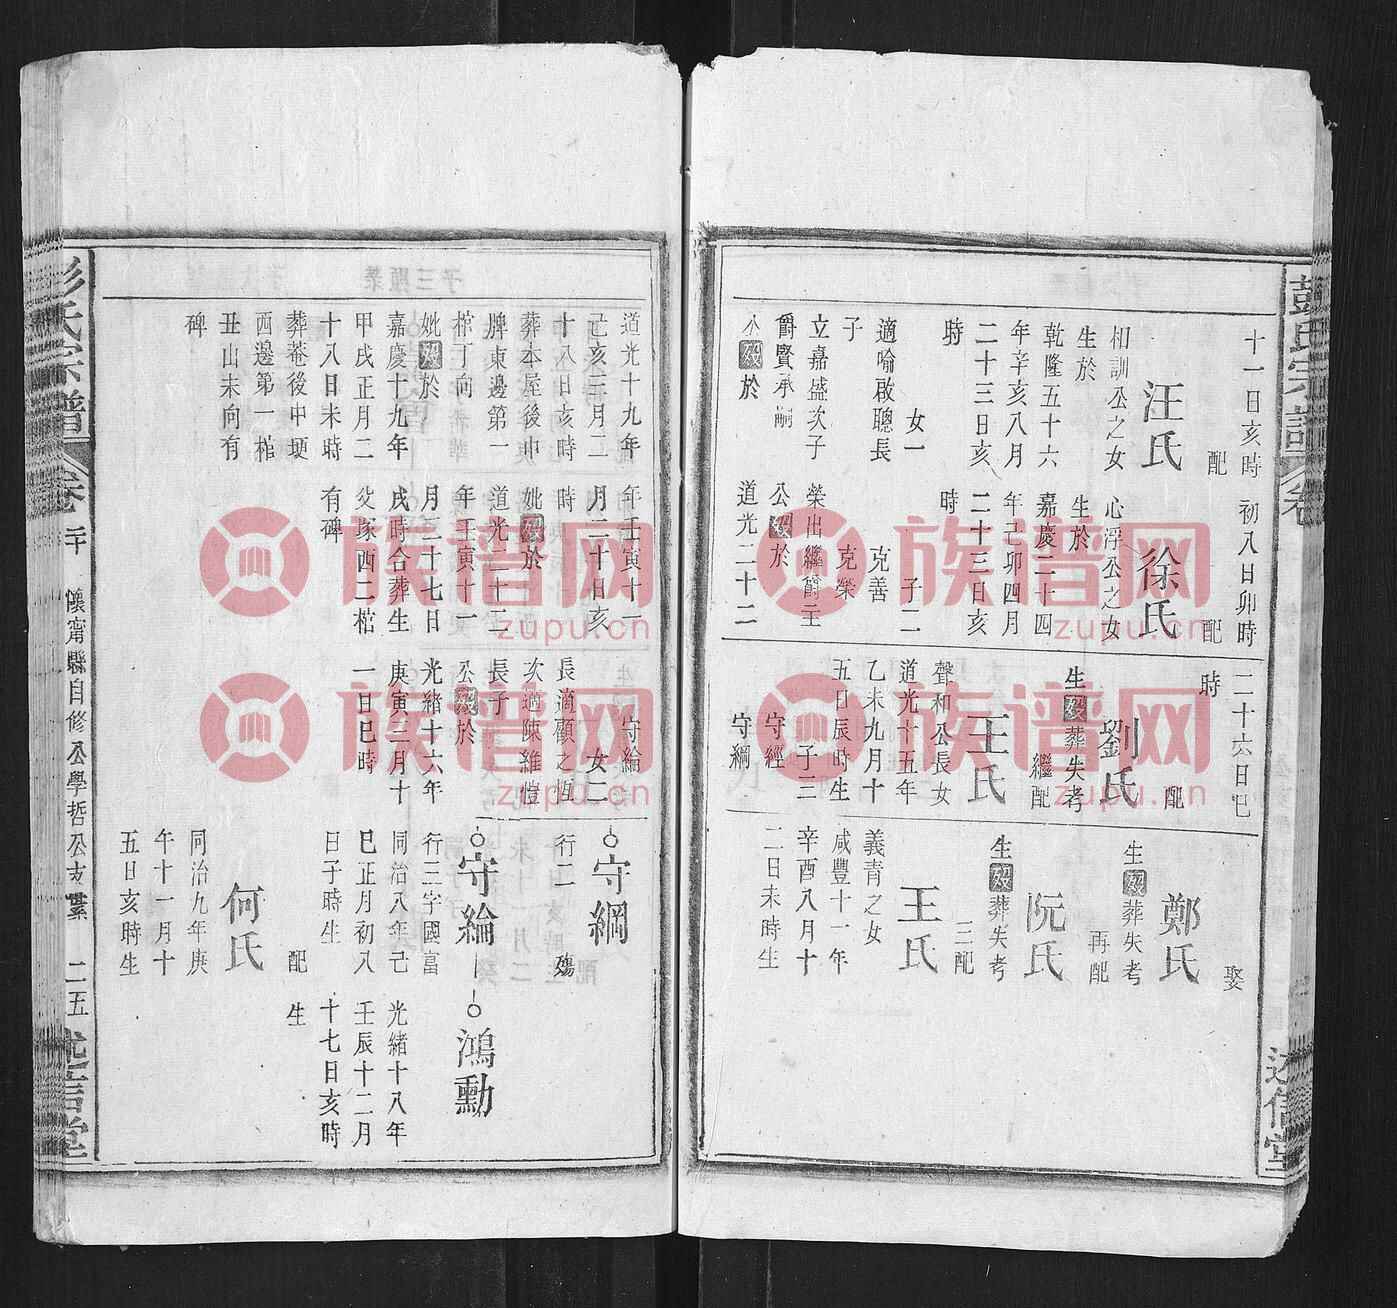 十一日亥時
配
汪氏
相訓公之女
生於
乾隆五十六
年辛亥八月
二十三日亥
時
女一
適喻啟聰長
子
立嘉盛次子
爵賢承嗣
公殁於
初八日卯時
配
徐氏
心浮公之女
生於
嘉慶二十四
年己卯四月
二十三日亥
時
子二
克善
克榮
榮出繼爵主
公殁於
道光二十二
二十六日巳
時
配
劉氏
生殁葬失考
繼配
王氏
聲和公長女
道光十五年
乙未九月十
五日辰時生
子三
守經
守綱
娶
鄭氏
生殁葬失考
再配
阮氏
生殁葬失考
三配
王氏
義青之女
咸豐十一年
辛酉八月十
二日未時生
述信堂
道光十九年
己亥三月二
十八日亥時
葬本屋後中
牌東邊第一
棺丁向
妣殁於
嘉慶十九年
甲戌正月二
十八日未時
葬菴後中埂
西邊第一棺
丑山未向有
碑
年壬寅十二
月二十日亥
時
妣殁於
道光二十二
年壬寅十一
月二十七日
戌時合葬生
父塚西二棺
有碑
守綸
女二
長適顧之恆
次適陳維愷
長子
公殁於
光緒十六年
庚寅二月十
一日巳時
守綱
行二 殤
守綸
行三字國富
同治八年己
巳正月初八
日子時生
配
何氏
同治九年庚
午十一月十
五日亥時生
鴻勳
光緒十八年
壬辰十二月
十七日亥時
生
彭氏宗譜
卷二十
懷甯縣自修公學哲公支世系
二五
述信堂
族谱网
zupu.cn
族谱网
zupu.cn
族谱网
zupu.cn
族谱网
zupu.cn